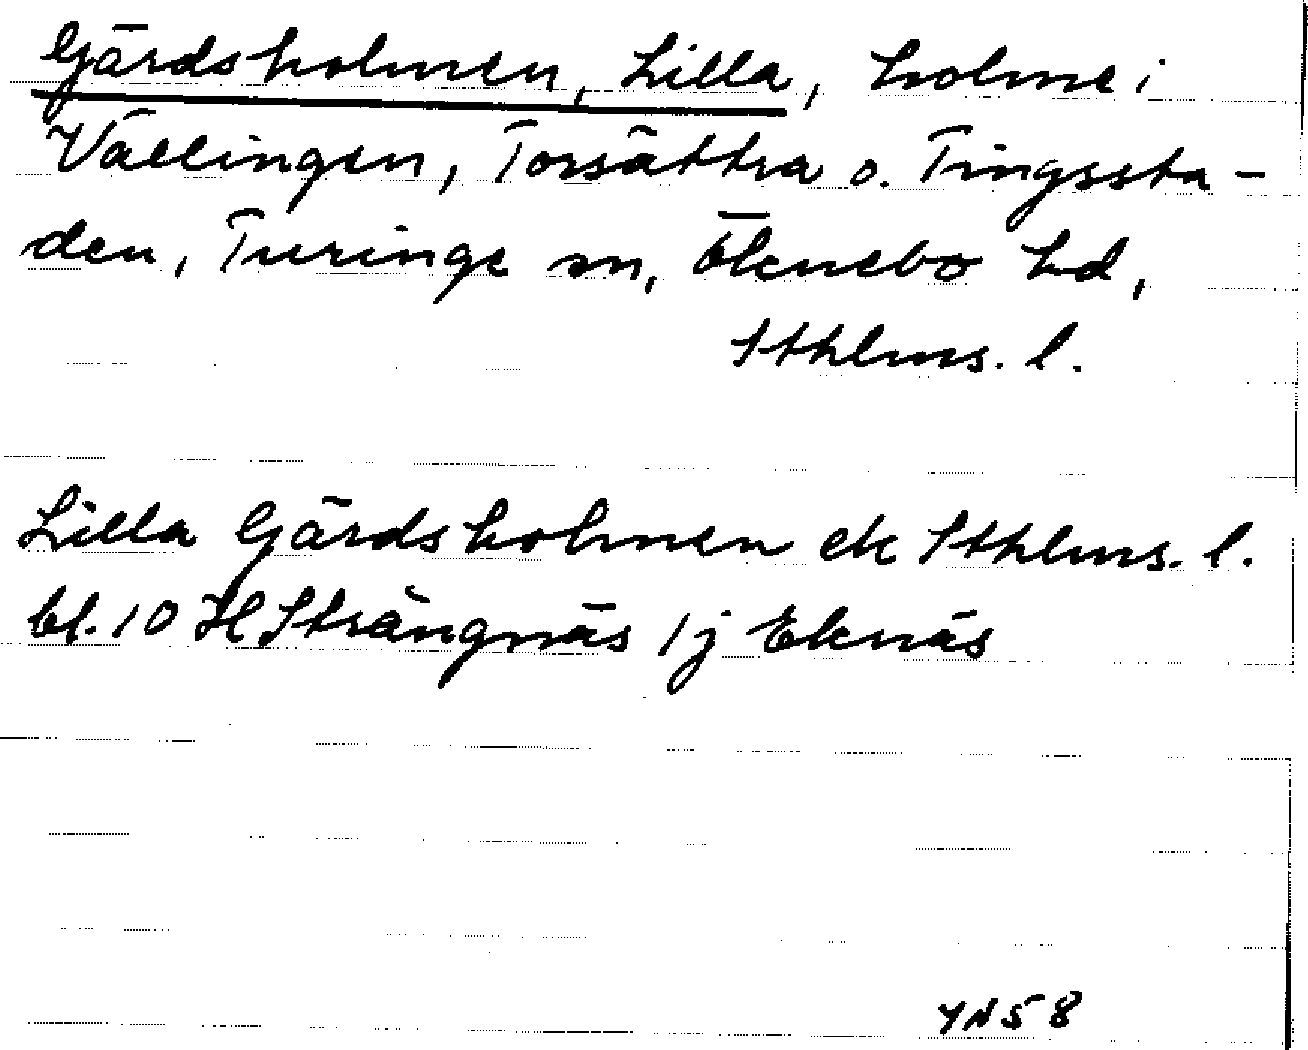 Gärdsholmen, Lilla, holme i
Vällingen, Torsättra o. Tingssta-
den, Turinge sn, Öknebo hd,
Sthlms. l.
Lilla Gärdsholmen ek Sthlms. l.
bl. 10 H Strängnäs 1j Eknäs
YN58